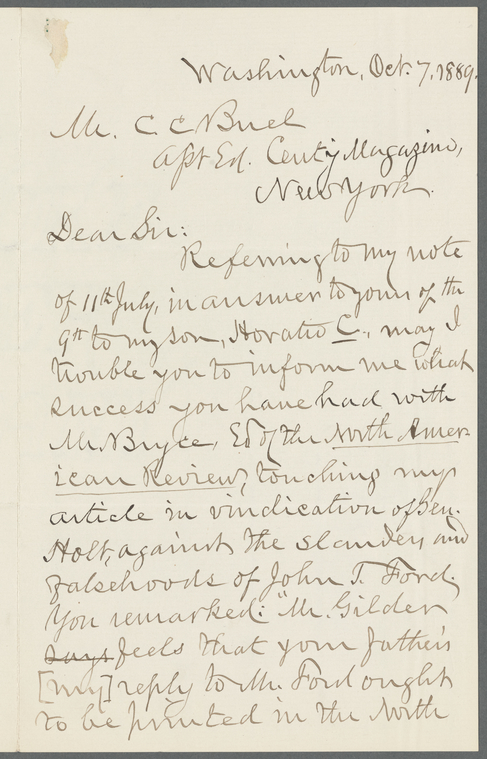 Washington, Oct. 7, 1889.
Mr. C C Buel
Asst Ed. Cent'y Magazine,
New York.
Dear Sir:
Referring to my note
of 11th July, in answer to yours of the
9th to my son, Horatio C., may I
trouble you to inform me what
success you have had with
Mr. Bryce, Ed of the North Amer-
ican Review, touching my
article in vindication of Gen.
Holt, against the slanders and
falsehoods of John T. Ford.
You remarked: "Mr. Gilder
says feels that your father's
[my] reply to Mr. Ford ought
to be printed in the North